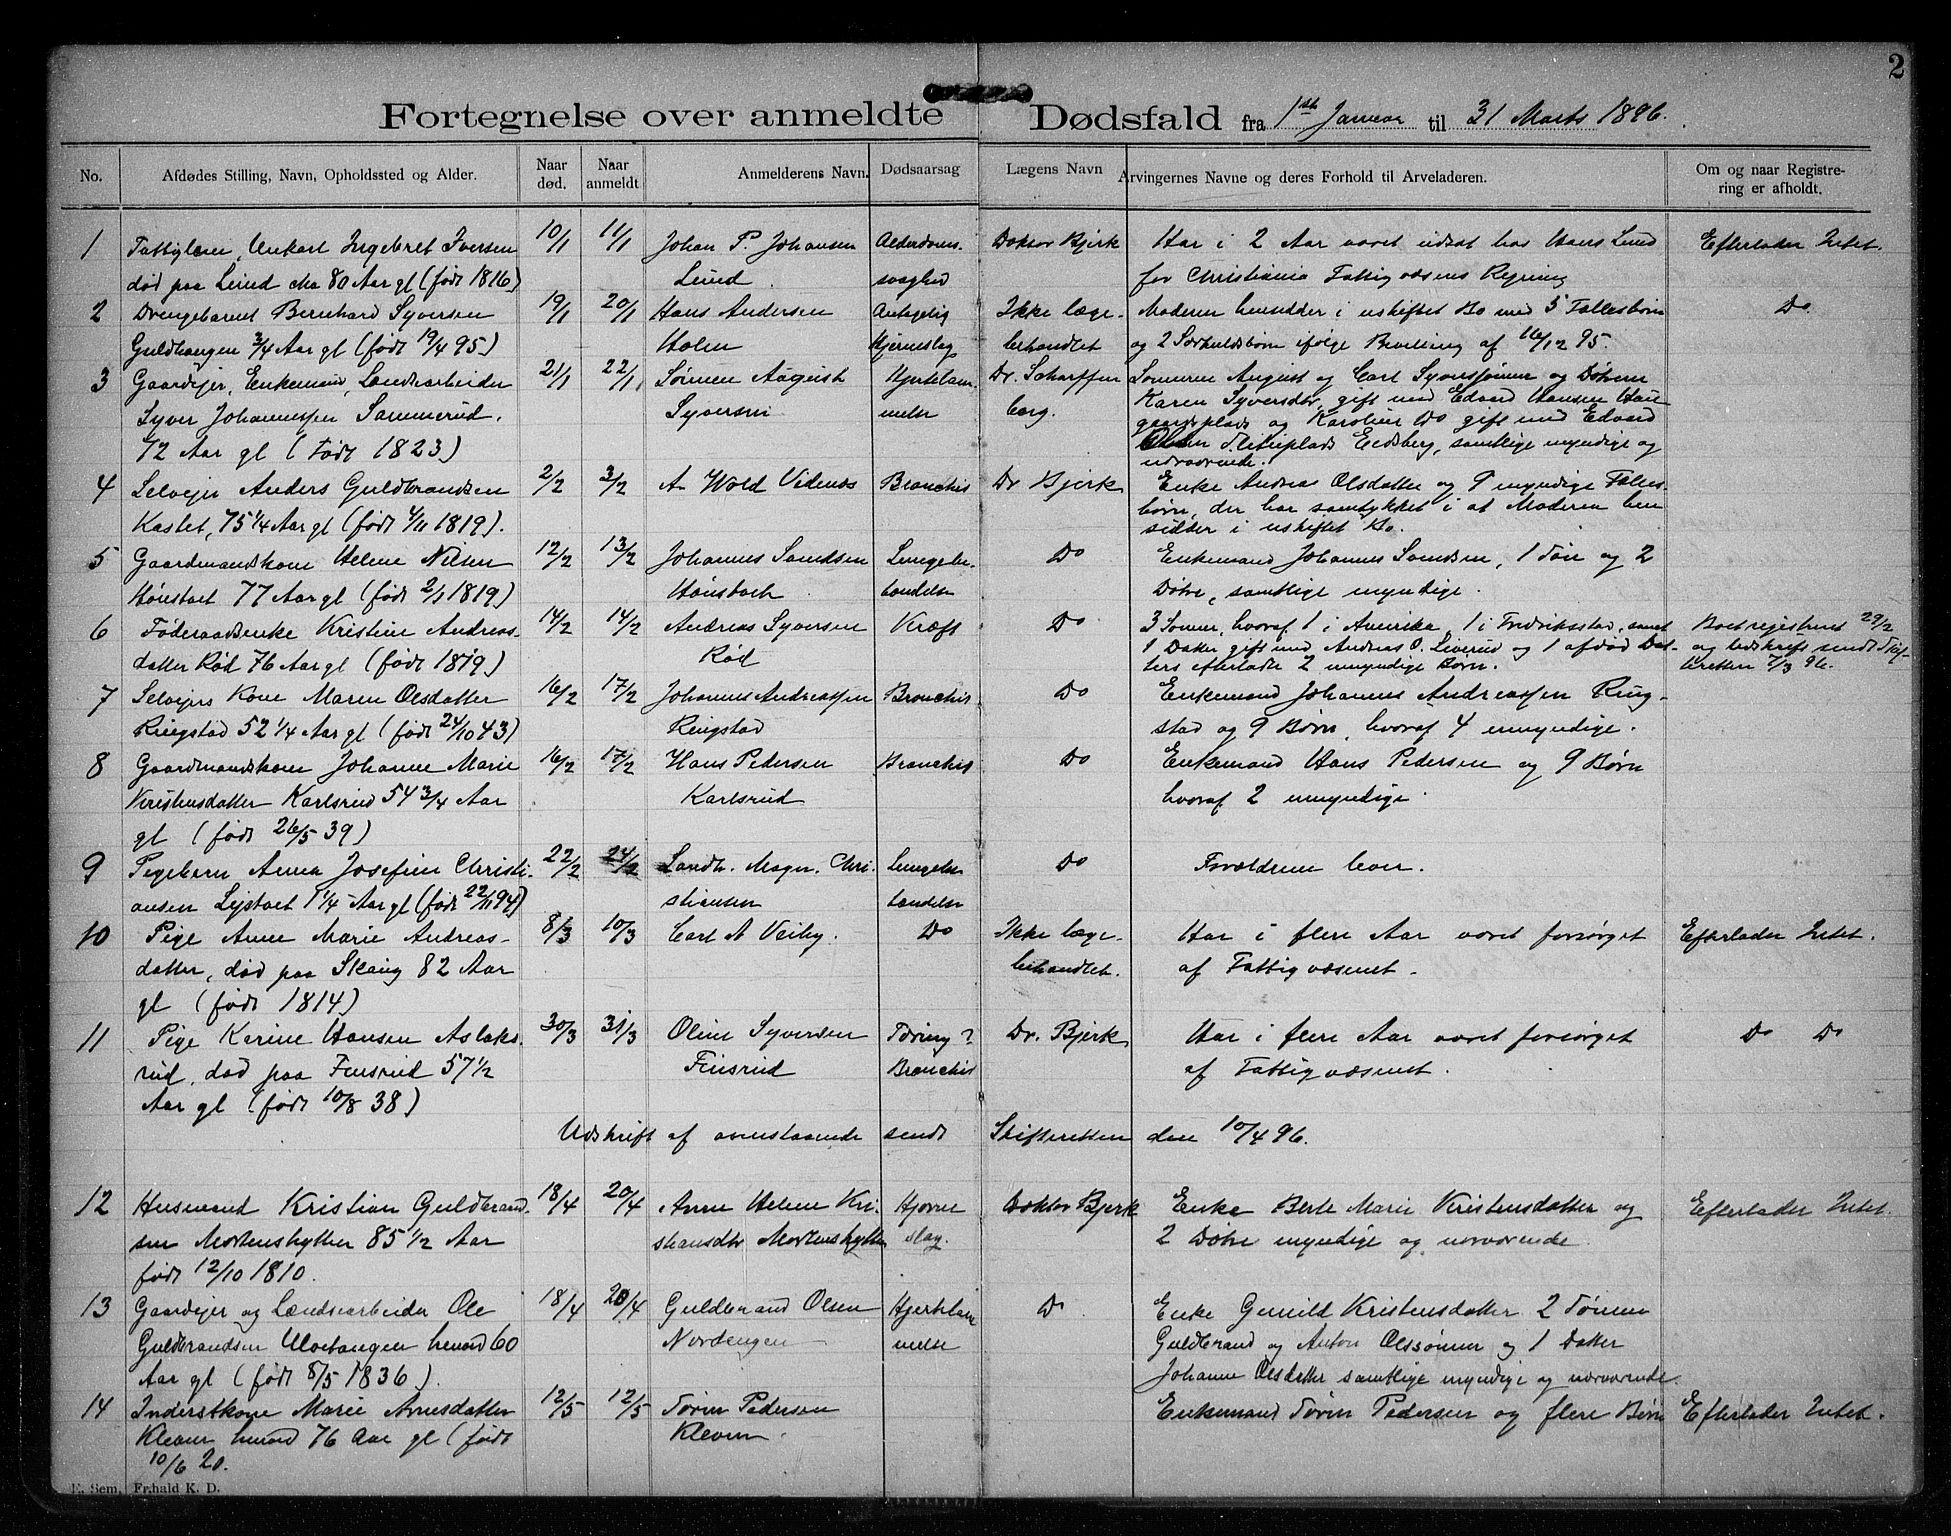 2
Fortegnelse over anmeldte Dødsfald fra 1ste Januar til 31 Marts 1896.
No. Afdødes Stilling, Navn, Opholdssted og Alder. Naar død. Naar anmeldt Anmelderens Navn. Dødsaarsag Lægens Navn Arvingernes Navne og deres Forhold til Arveladeren. Om og naar Registrering er afholdt.
1 Fattiglem, Ingebret Iversen 10/1 11/1 Johan P. Johansen Alderdoms- Doktor Bjerk Har i 2 Aar været udsat hos Hans Lund Efterlader Intet.
død paa Lund ca 80 Aar gl (født 1816) Lund svaghed for Christiania Fattigvæsens Regning
2 Drengebarnet Bernhard Syversen 19/1 20/1 Hans Andersen Antagelig Ikke læge- Moderen hensidder i uskiftet Bo med 5 Fællesbørn Do
Guldhaugen 3/4 Aar gl (født 19/4 95) Holen Hjerneslag behandlet og 2 Særkuldsbørn ifølge Bevilling af 16/12 95.
3 Gaardejer, Enkemand, Landsearbeider 21/1 22/1 Sønnen August Hjertelam- Dr. Scharffen- Sønnerne August og Carl Syverssønner og Døtrene
Syver Johannessen Sammerud. Syversen melse berg. Karen Syversdtr, gift med Edvard Hansen Hau-
72 Aar gl (Født 1823) gaardsplads og Karoline Do gift med Edvard
Olsen Eidsberg, samtlige myndige og
nærværende.
4 Selvejer Anders Guldbrandsen 2/2 3/2 A Wold Videnæs Bronchit Dr Bjerk Enke Andrea Olsdatter og 9 myndige Fælles-
Kastet, 75 1/4 Aar gl (født 4/11 1819). børn, der har samtykket i at Moderen hen
sidder i uskiftet Bo.
5 Gaardmandskone Helene Nilsen 12/2 13/2 Johannes Samdsen Lungebe- Do Enkemand Johannes Samdsen, 1 Søn og 2
Hønstvet 77 Aar gl (født 2/1 1819) Hønstvet tændelse Døtre, samtlige myndige.
6 Føderaadsenke Kristine Andreas- 14/2 14/2 Andreas Syversen Kræft Do 3 Sønner, hvoraf 1 i Amerika, 1 i Fredriksstad, samt Boet registreret 29/2
datter Rød 76 Aar gl (født 1819) Rød 1 Datter gift med Andreas O. Liverud og 1 afdød Dat- og Udskrift sendt Skif-
ters efterladte 2 umyndige Børn. teretten 7/3 96.
7 Selvejers Kone Maren Olsdatter 16/2 17/2 Johannes Andreassen Bronchit Do Enkemand Johannes Andreassen Ring-
Ringstad 52 1/4 Aar gl (født 24/10 43) Ringstad stad og 9 Børn, hvoraf 4 umyndige.
8 Gaardmandskone Johanne Marie 16/2 17/2 Hans Pedersen Bronchit Do Enkemand Hans Pedersen og 9 Børn
Kristensdatter Karlsrud 54 3/4 Aar Karlsrud hvoraf 2 umyndige.
gl (født 26/5 39)
9 Pigebarn Anna Josefine Christi- 22/2 24/2 Landh. Magn. Chri- Lungebe- Do Forældrene lever.
ansen 1 1/4 Aar gl (født 22/11 94) stiansen tændelse
10 Pige Anne Marie Andreas- 8/3 10/3 Carl A Veiby. Do Ikke læge- Har i flere Aar været forsørget Efterlader Intet.
datter, død paa Skaug 82 Aar behandlet. af Fattigvæsenet.
gl (født 1814)
11 Pige Karine Hansen Aslaks- 30/3 31/3 Oline Syversen Tæring? Dr. Bjerk Har i flere Aar været forsørget Do Do
rud, død paa Finsrud 57 1/2 Finsrud Bronchit af Fattigvæsenet.
Aar gl (født 10/8 38)
Udskrift af ovenstaaende sendt Skifteretten den 10/4 96.
12 Husmand Kristian Guldbrand- 18/4 20/4 Anne Helene Kri- Hjerne- Doktor Bjerk Enke Berte Marie Kristensdatter og Efterlader Intet.
sen Mortenshytten 85 1/2 Aar stiansdtr Mortenshytten slag. 2 Døtre myndige og nærværende.
født 12/10 1810.
13 Gaardejer og Landsearbeider Ole 18/4 20/4 Guldbrand Olsen Hjertelam- Do Enke Gunild Kristensdatter 2 Sønner
Guldbrandsen Ulvehaugen henved 60 Nordengen melse Guldbrand og Anton Olssønner og 1 Datter
Aar gl (født 8/5 1836). Johanne Olsdatter samtlige myndige og nærværende.
14 Inderstkone Marie Arnesdatter 12/5 12/5 Søren Pedersen Enkemand Søren Pedersen og flere Børn Efterlader Intet.
Kleven henved 76 Aar gl (født Kleven.
10/6 20.
E. Sem, Fr.hald K. D.